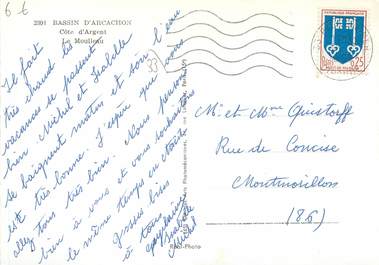 6 6
2301 BASSIN D'ARCACHON
Côte d'Argent
Le Moulleau
33
Il fait
très chaud les
vacances se passent
bien. Michel et Isabelle
se baignent matin et soir l'eau
est très bonne. J'espère que vous
allez tous très bien. Nous pensons
bien à vous et vous souhaitons
le même temps en Charente
grosses bises
à tous
Isabelle
Michel
RÉPUBLIQUE FRANÇAISE
0,25
M. et Mme Quistorff
Rue de Concise
Montmorillon
(86)
Réal-Photo